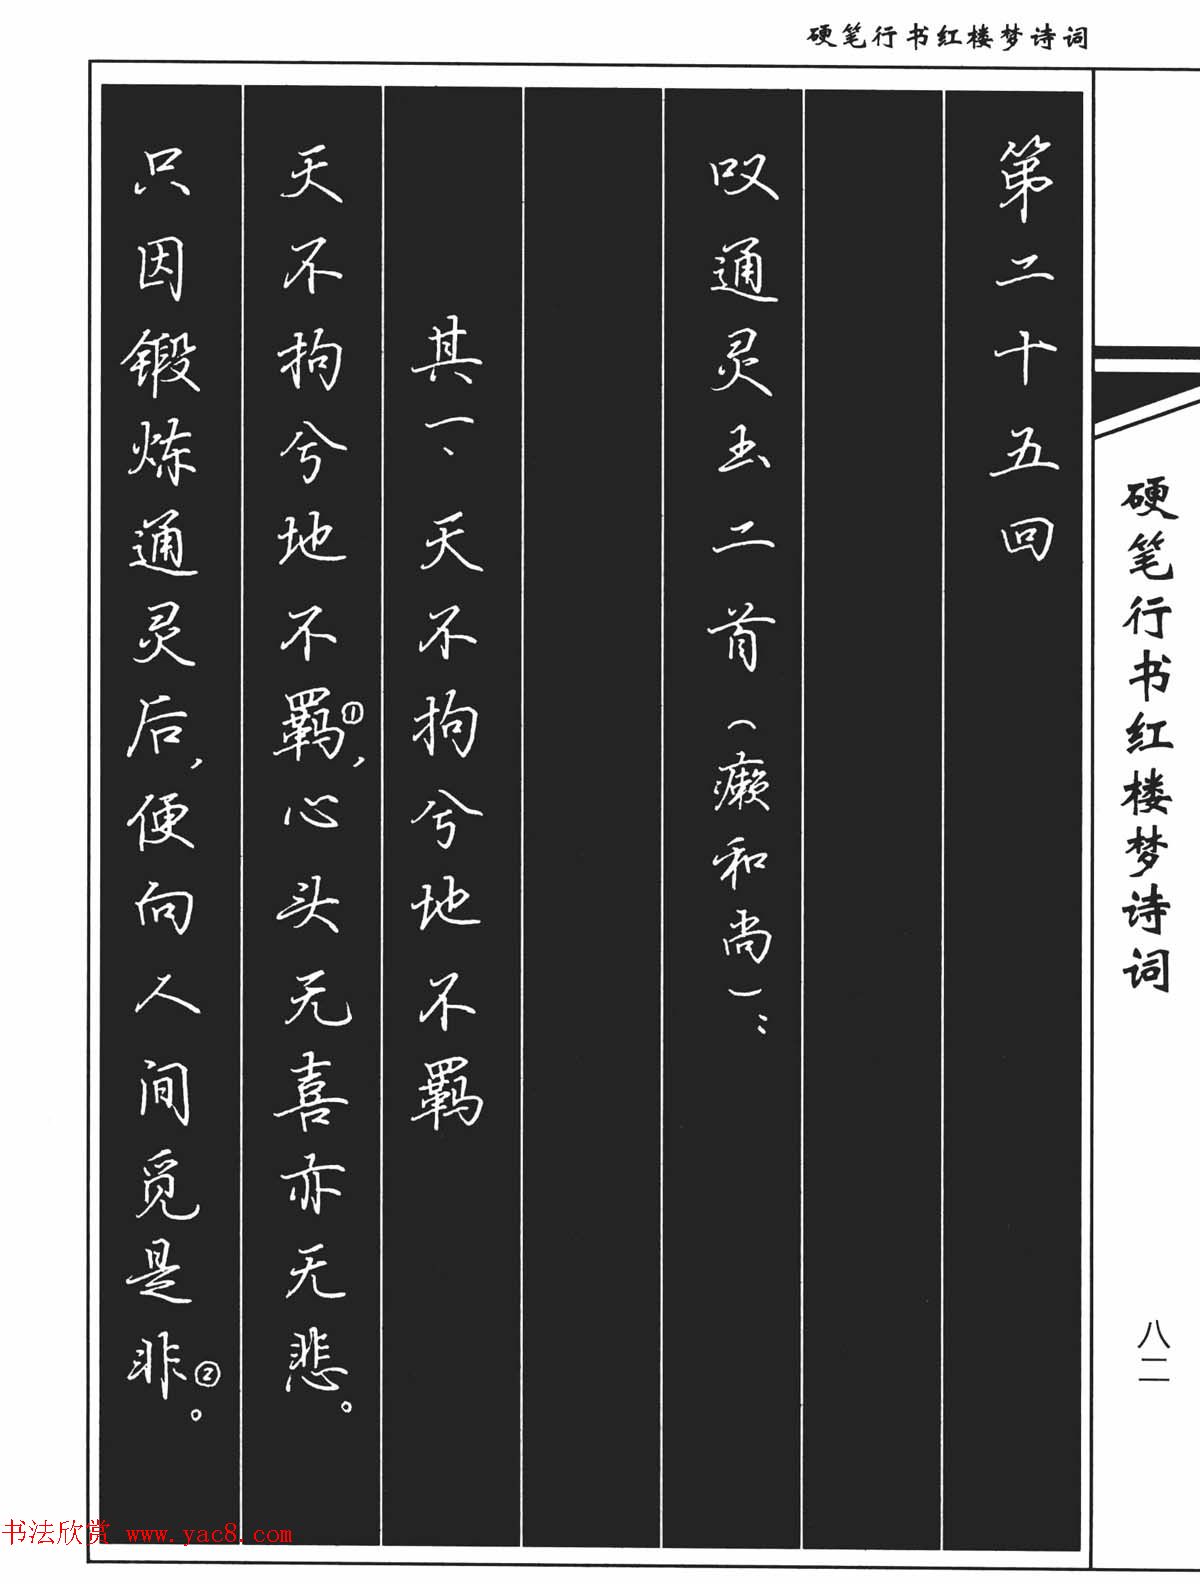 硬笔行书红楼梦诗词
第二十五回
叹通灵玉二首（癞和尚）：
其一、天不拘兮地不羁
天不拘兮地不羁①，心头无喜亦无悲。
只因锻炼通灵后，便向人间觅是非②。
硬笔行书红楼梦诗词
八二
书法欣赏 www.yac8.com